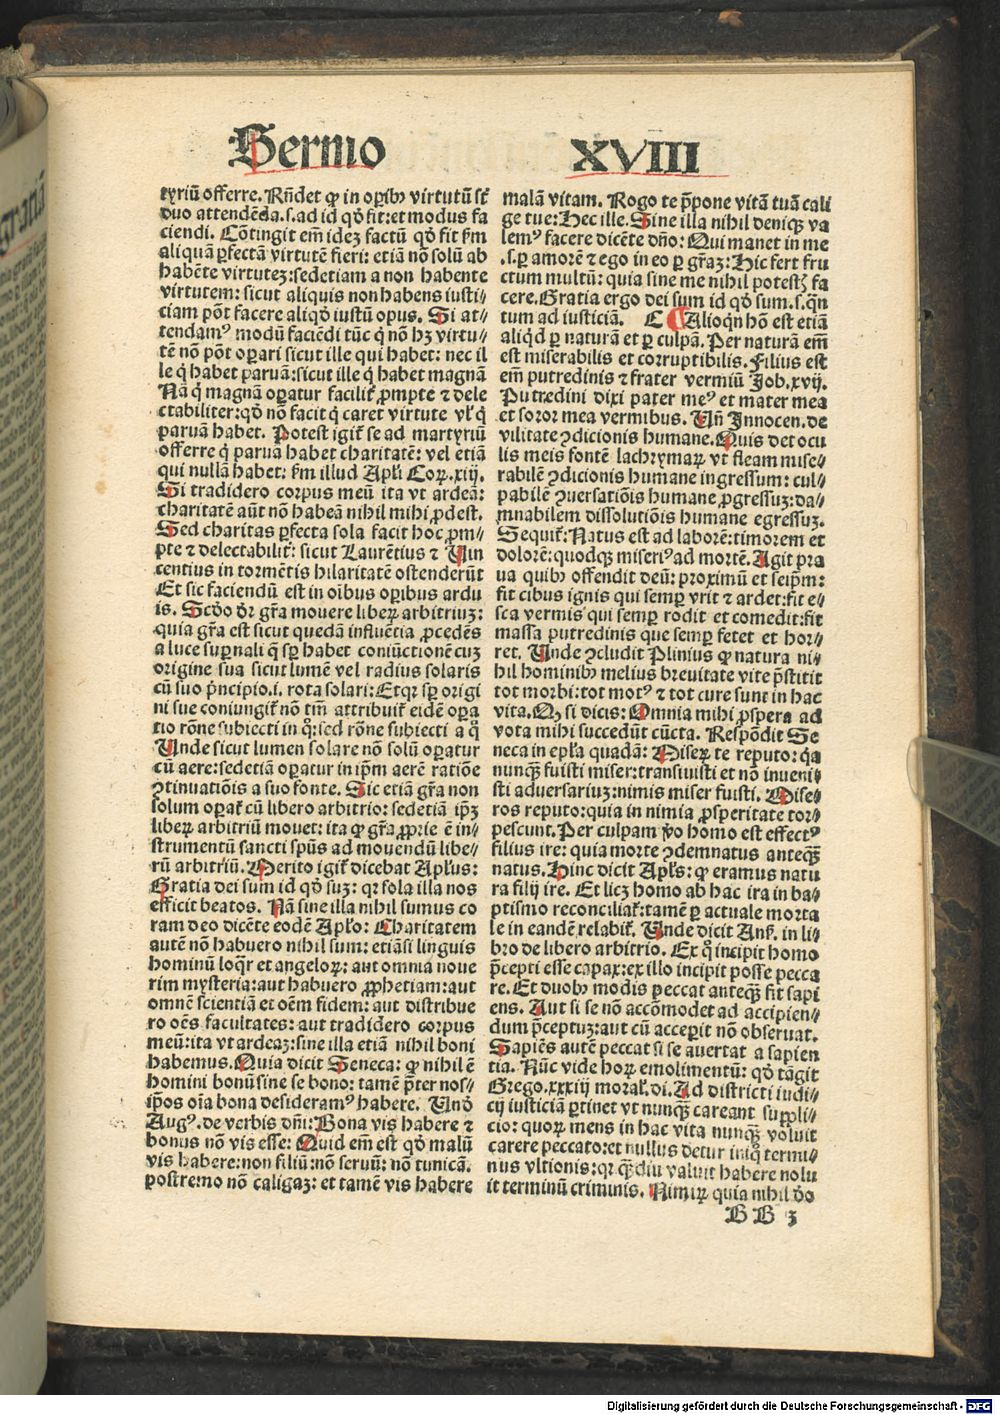 Sermo XVIII
tyriū offerre. Rñdet ꝙ in oꝑibꝰ virtutū sẽ
duo attendēda.s.ad id qđ fit:et modus fa
ciendi. Cōtingit em̄ idez factū qđ fit ẜm
aliquā ꝑfectā virtutē fieri: etiā nō solū ab
habēte virtutez:sedetiam a non habente
virtutem: sicut aliquis non habens iusti⸗
ciam pōt facere aliqđ iustū opus. Si at⸗
tendamꝰ modū faciēdi tūc q̇ nō hꝫ virtu⸗
tē nō pōt oꝑari sicut ille qui habet: nec il
le q̇ habet paruā:sicut ille q̇ habet magnā
Nā q̇ magnā oꝑatur facilit̄ ꝓmpte ⁊ dele
ctabiliter:qđ nō facit q̇ caret virtute vl̓ q̇
paruā habet. Potest igit̄ se ad martyriū
offerre q̇ paruā habet charitatē: vel etiā
qui nullā habet: ẜm illud Apl̓i Coꝝ.xiij.
Si tradidero corpus meū ita vt ardeā:
charitatē aūt nō habeā nihil mihi ꝓdest.
Sed charitas ꝑfecta sola facit hoc ꝓm⸗
pte ⁊ delectabilit̄: sicut Laurētius ⁊ Vin
centius in tormētis hilaritatē ostenderūt
Et sic faciendū est in oībus oꝑibus ardu
is. Scđo dr̄ gr̄a mouere liberꝝ arbitriuꝫ:
quia gr̄a est sicut quedā influētia ꝓcedēs
a luce suꝑnali q̄ sꝑ habet coniūctionē cuꝫ
origine sua sicut lumē vel radius solaris
cū suo pͥncipio.i. rota solari: Et qꝛ sꝑ origi
ni sue coniungit̄ nō tm̄ attribuit̄ eidē oꝑa
tio rōne subiecti in q̊: sed rōne subiecti a q̊
Unde sicut lumen solare nō solū oꝑatur
cū aere:sedetiā oꝑatur in ip̄m aerē ratiōe
ꝯtinuatiōis a suo fonte. Sic etiā gr̄a non
solum oꝑat̄ cū libero arbitrio: sedetiā ip̄ꝫ
liberꝝ arbitriū mouet: ita ꝙ gr̄a ꝓprie ē in⸗
strumentū sancti sp̄us ad mouendū libe⸗
rū arbitriū. Merito igit̄ dicebat Apl̓us:
Gratia dei sum id qđ suꝫ: qꝛ sola illa nos
efficit beatos. Nā sine illa nihil sumus co
ram deo dicēte eodē Apl̓o: Charitatem
autē nō habuero nihil sum: etiāsi linguis
hominū loqr̄ et angeloꝝ: aut omnia noue
rim mysteria:aut habuero ꝓphetiam:aut
omnē scientiā et oēm fidem: aut distribue
ro oēs facultates: aut tradidero corpus
meū:ita vt ardeaꝫ:sine illa etiā nihil boni
habemus. Quia dicit Seneca: ꝙ nihil ē
homini bonū sine se bono: tamē p̄ter nos⸗
ip̄os oīa bona desideramꝰ habere. Vnđ
Augꝰ. de verbis dn̄i: Bona vis habere ⁊
bonus nō vis esse: Quid em̄ est qđ malū
vis habere:non filiū:nō seruū: nō tunicā.
postremo nō caligaꝫ: et tamē vis habere
malā vitam. Rogo te p̄pone vitā tuā cali
ge tue: Hec ille. Sine illa nihil deniqꝫ va
lemꝰ facere dicēte dn̄o: Qui manet in me
.s.ꝑ amorē ⁊ ego in eo ꝑ gr̄aꝫ: Hic fert fru
ctum multū: quia sine me nihil potestꝭ fa
cere. Gratia ergo dei sum id qđ sum.s.q̄n
tum ad iusticiā. C Alioqn̄ hō est etiā
aliqđ ꝑ naturā et ꝑ culpā. Per naturā em̄
est miserabilis et corruptibilis. Filius est
em̄ putredinis ⁊ frater vermiū Job.xvij.
Putredini dixi pater meꝰ et mater mea
et soror mea vermibus. Vn̄ Innocen. de
vilitate ꝯdicionis humane. Quis det ocu
lis meis fontē lachrymaꝝ vt fleam mise⸗
rabilē ꝯdicionis humane ingressum: cul⸗
pabilē ꝯuersatiōis humane ꝓgressuꝫ:da⸗
mnabilem dissolutiōis humane egressuꝫ.
Sequit̄: Natus est ad laborē: timorem et
dolorē: quodqꝫ miseriꝰ ad mortē. Agit pra
ua quibꝰ offendit deū: proximū et seip̄m:
fit cibus ignis qui semꝑ vrit ⁊ ardet:fit e⸗
sca vermis qui semꝑ rodit et comedit:fit
massa putredinis que semꝑ fetet et hor⸗
ret. Unde ꝯcludit Plinius ꝙ natura ni⸗
hil hominibꝰ melius breuitate vite p̄stitit
tot morbi: tot motꝰ ⁊ tot cure sunt in hac
vita. Qꝙ si dicis: Omnia mihi ꝓspera ad
vota mihi succedūt cūcta. Respōdit Se
neca in epl̓a quadā: Miserꝝ te reputo: q̇a
nunqꝫ̄ fuisti miser:transiuisti et nō inueni⸗
sti aduersariuꝫ:nimis miser fuisti. Mise⸗
ros reputo:quia in nimia ꝓsperitate tor⸗
pescunt. Per culpam ꝟo homo est effectꝰ
filius ire: quia morte ꝯdemnatus anteqꝫ̄
natus. Hinc dicit Apl̓s: ꝙ eramus natu
ra filij ire. Et licꝫ homo ab hac ira in ba⸗
ptismo reconciliat̄:tamē ꝑ actuale morta
le in eandē relabit̄. Unde dicit Anß. in li⸗
bro de libero arbitrio. Ex q̊ incipit homo
p̄cepti esse capax:ex illo incipit posse pecca
re. Et duobꝰ modis peccat anteqꝫ̄ fit sapi
ens. Aut si se nō accōmodet ad accipien⸗
dum p̄ceptuꝫ:aut cū acceꝑit nō obseruat.
Sapiēs autē peccat si se auertat a sapien
tia. Nūc vide hoꝝ emolimentū: qđ tāgit
Grego.xxxiij moral̓. di. Ad districti iudi⸗
cij iusticiā ꝑtinet vt nunqꝫ̄ careant suppli⸗
cio: quoꝝ mens in hac vita nunqꝫ̄ voluit
carere peccato:et nullus detur iniq̊ termi⸗
nus vltionis: qꝛ qꝫ̄diu valuit habere nolu
it terminū criminis. Nimiꝝ quia nihil đo
BB 3
Digitalisierung gefördert durch die Deutsche Forschungsgemeinschaft - DFG